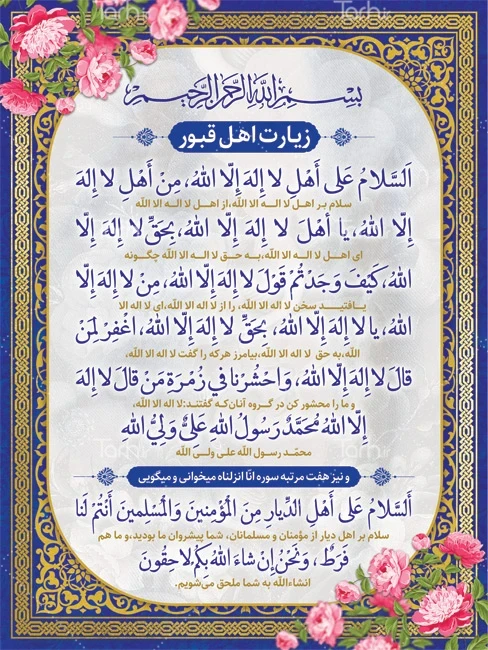 بِسْمِ اللهِ الرَّحْمٰنِ الرَّحِيمِ
زیارت اهل قبور
اَلسَّلامُ عَلى اَهْلِ لا اِلهَ اِلَّا اللهُ، مِنْ اَهْلِ لا اِلهَ
سلام بر اهل لا اله الا الله، از اهل لا اله الا الله
اِلَّا اللهُ، يا اَهْلَ لا اِلهَ اِلَّا اللهُ، بِحَقِّ لا اِلهَ اِلَّا
ای اهل لا اله الا الله، به حق لا اله الا الله چگونه
اللهُ، كَيْفَ وَجَدْتُمْ قَوْلَ لا اِلهَ اِلَّا اللهُ، مِنْ لا اِلهَ اِلَّا
یافتید سخن لا اله الا الله، را از لا اله الا الله، ای لا اله الا
اللهُ، يا لا اِلهَ اِلَّا اللهُ، بِحَقِّ لا اِلهَ اِلَّا اللهُ، اغْفِرْ لِمَنْ
الله، به حق لا اله الا الله، بیامرز هرکه را گفت لا اله الا الله،
قالَ لا اِلهَ اِلَّا اللهُ، وَاحْشُرْنا فى زُمْرَةِ مَنْ قالَ لا اِلهَ
و ما را محشور کن در گروه آنان که گفتند: لا اله الا الله،
اِلَّا اللهُ مُحَمَّدٌ رَسُولُ اللهِ عَلىٌّ وَلِىُّ اللهِ
محمّد رسول الله علی ولی الله
و نیز هفت مرتبه سوره انّا انزلناه میخوانی و میگویی
اَلسَّلامُ عَلى اَهْلِ الدِّيارِ مِنَ الْمُؤْمِنينَ وَالْمُسْلِمينَ اَنْتُمْ لَنا
سلام بر اهل دیار از مؤمنان و مسلمانان، شما پیشروان ما بودید، و ما هم
فَرَطٌ، وَنَحْنُ اِنْ شاءَ اللهُ بِكُمْ لاحِقُونَ
انشاءالله به شما ملحق می‌شویم.